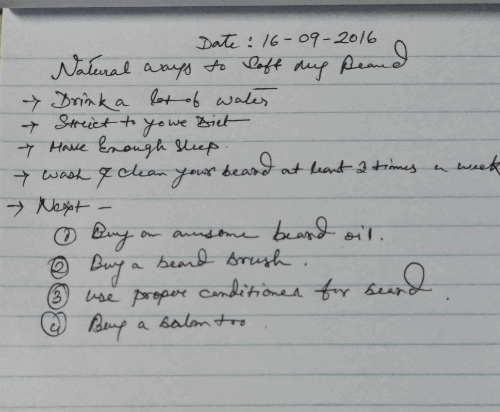 Date : 16-09-2016
Natural ways to Soft my Beard
→ Drink a lot of water
→ Strict to your Diet
→ Have Enough Sleep.
→ Wash & clean your beard at least 2 times a week
→ Next -
① Buy an awesome beard oil.
② Buy a beard brush.
③ use proper conditioner for beard.
④ Buy a balm too.